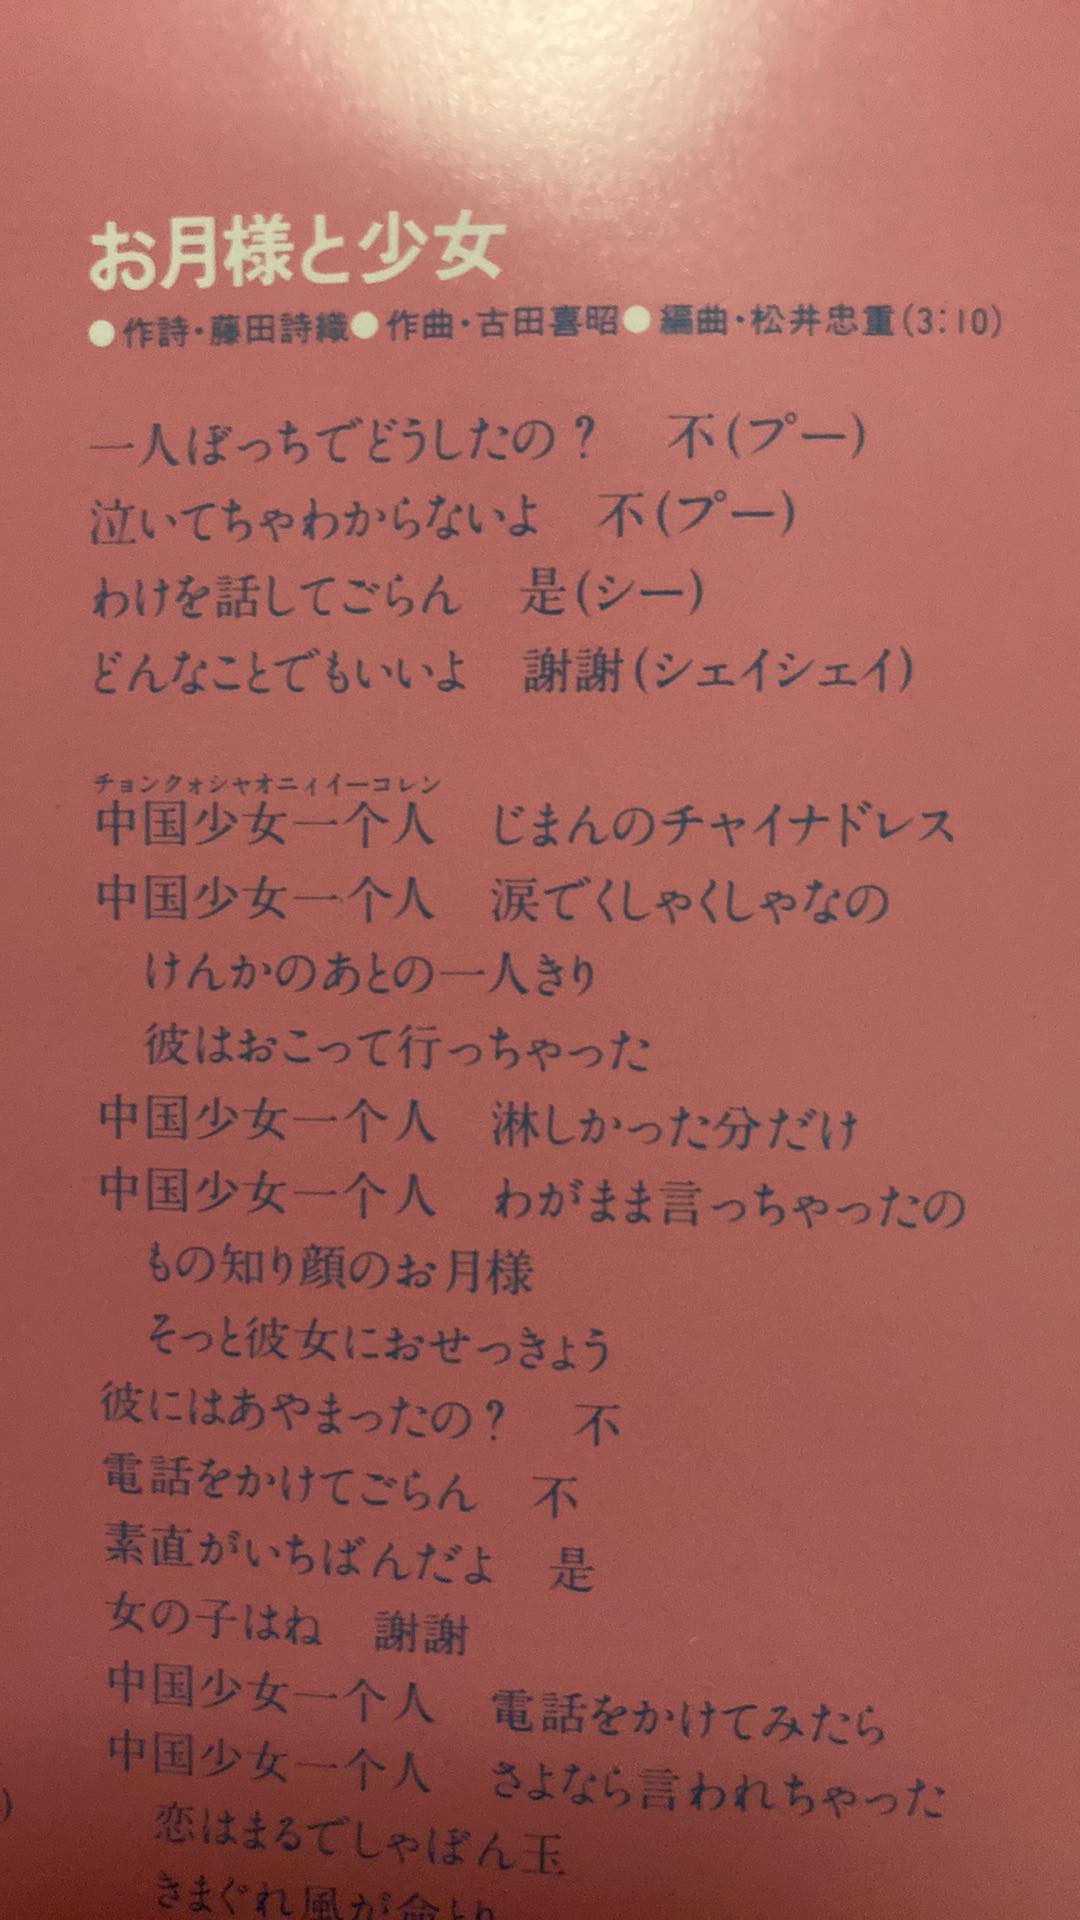 お月様と少女
●作詩・藤田詩織●作曲・古田喜昭●編曲・松井忠重(3:10)
一人ぼっちでどうしたの？　不(プー)
泣いてちゃわからないよ　不(プー)
わけを話してごらん　是(シー)
どんなことでもいいよ　謝謝(シェイシェイ)
チョンクォシャオニィイーコレン
中国少女一个人　じまんのチャイナドレス
中国少女一个人　涙でくしゃくしゃなの
けんかのあとの一人きり
彼はおこって行っちゃった
中国少女一个人　淋しかった分だけ
中国少女一个人　わがまま言っちゃったの
もの知り顔のお月様
そっと彼女におせっきょう
彼にはあやまったの？　不
電話をかけてごらん　不
素直がいちばんだよ　是
女の子はね　謝謝
中国少女一个人　電話をかけてみたら
中国少女一个人　さよなら言われちゃった
)
恋はまるでしゃぼん玉
きまぐれ風が命とり